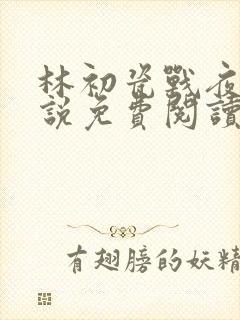 林初瓷戰夜
說免費閱讀
有翅膀的妖精